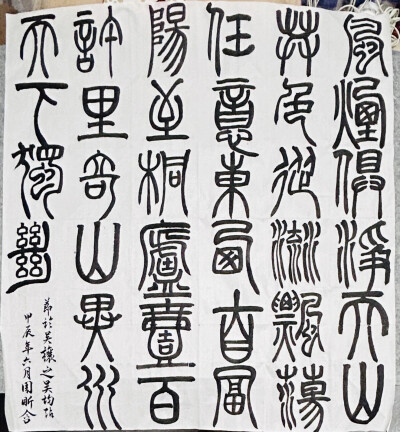 風煙俱淨天山
共色從流飄蕩
任意東西自富
陽至桐廬壹百
許里奇山異水
天下獨絕
節吳之吳均帖
甲辰年六月周昕